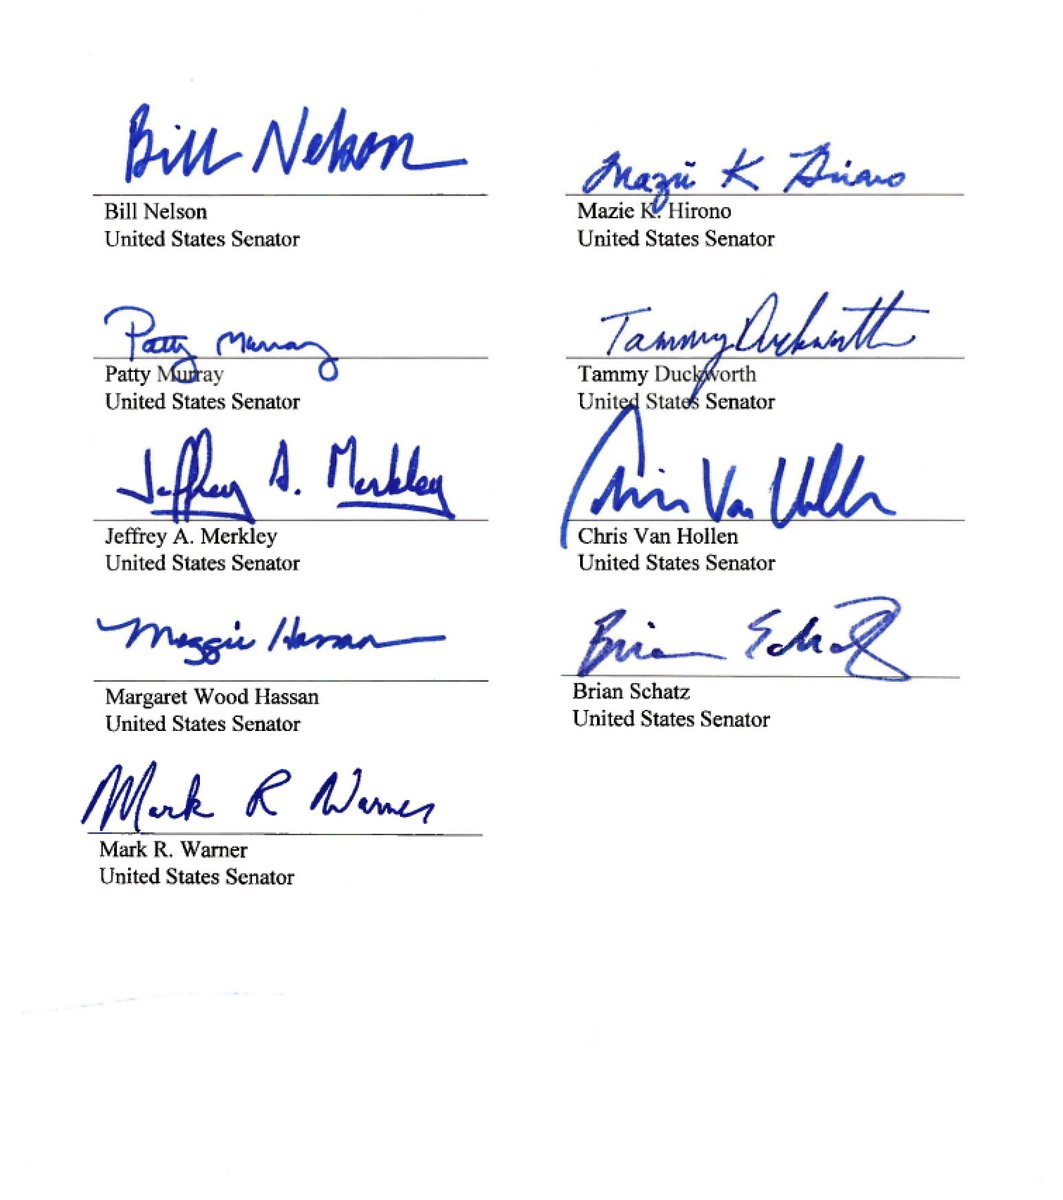 Bill Nelson
Bill Nelson
United States Senator
Mazie K Hirono
Mazie K. Hirono
United States Senator
Patty Murray
Patty Murray
United States Senator
Tammy Duckworth
Tammy Duckworth
United States Senator
Jeffrey A. Merkley
Jeffrey A. Merkley
United States Senator
Chris Van Hollen
Chris Van Hollen
United States Senator
Maggie Hassan
Margaret Wood Hassan
United States Senator
Brian Schatz
Brian Schatz
United States Senator
Mark R Warner
Mark R. Warner
United States Senator